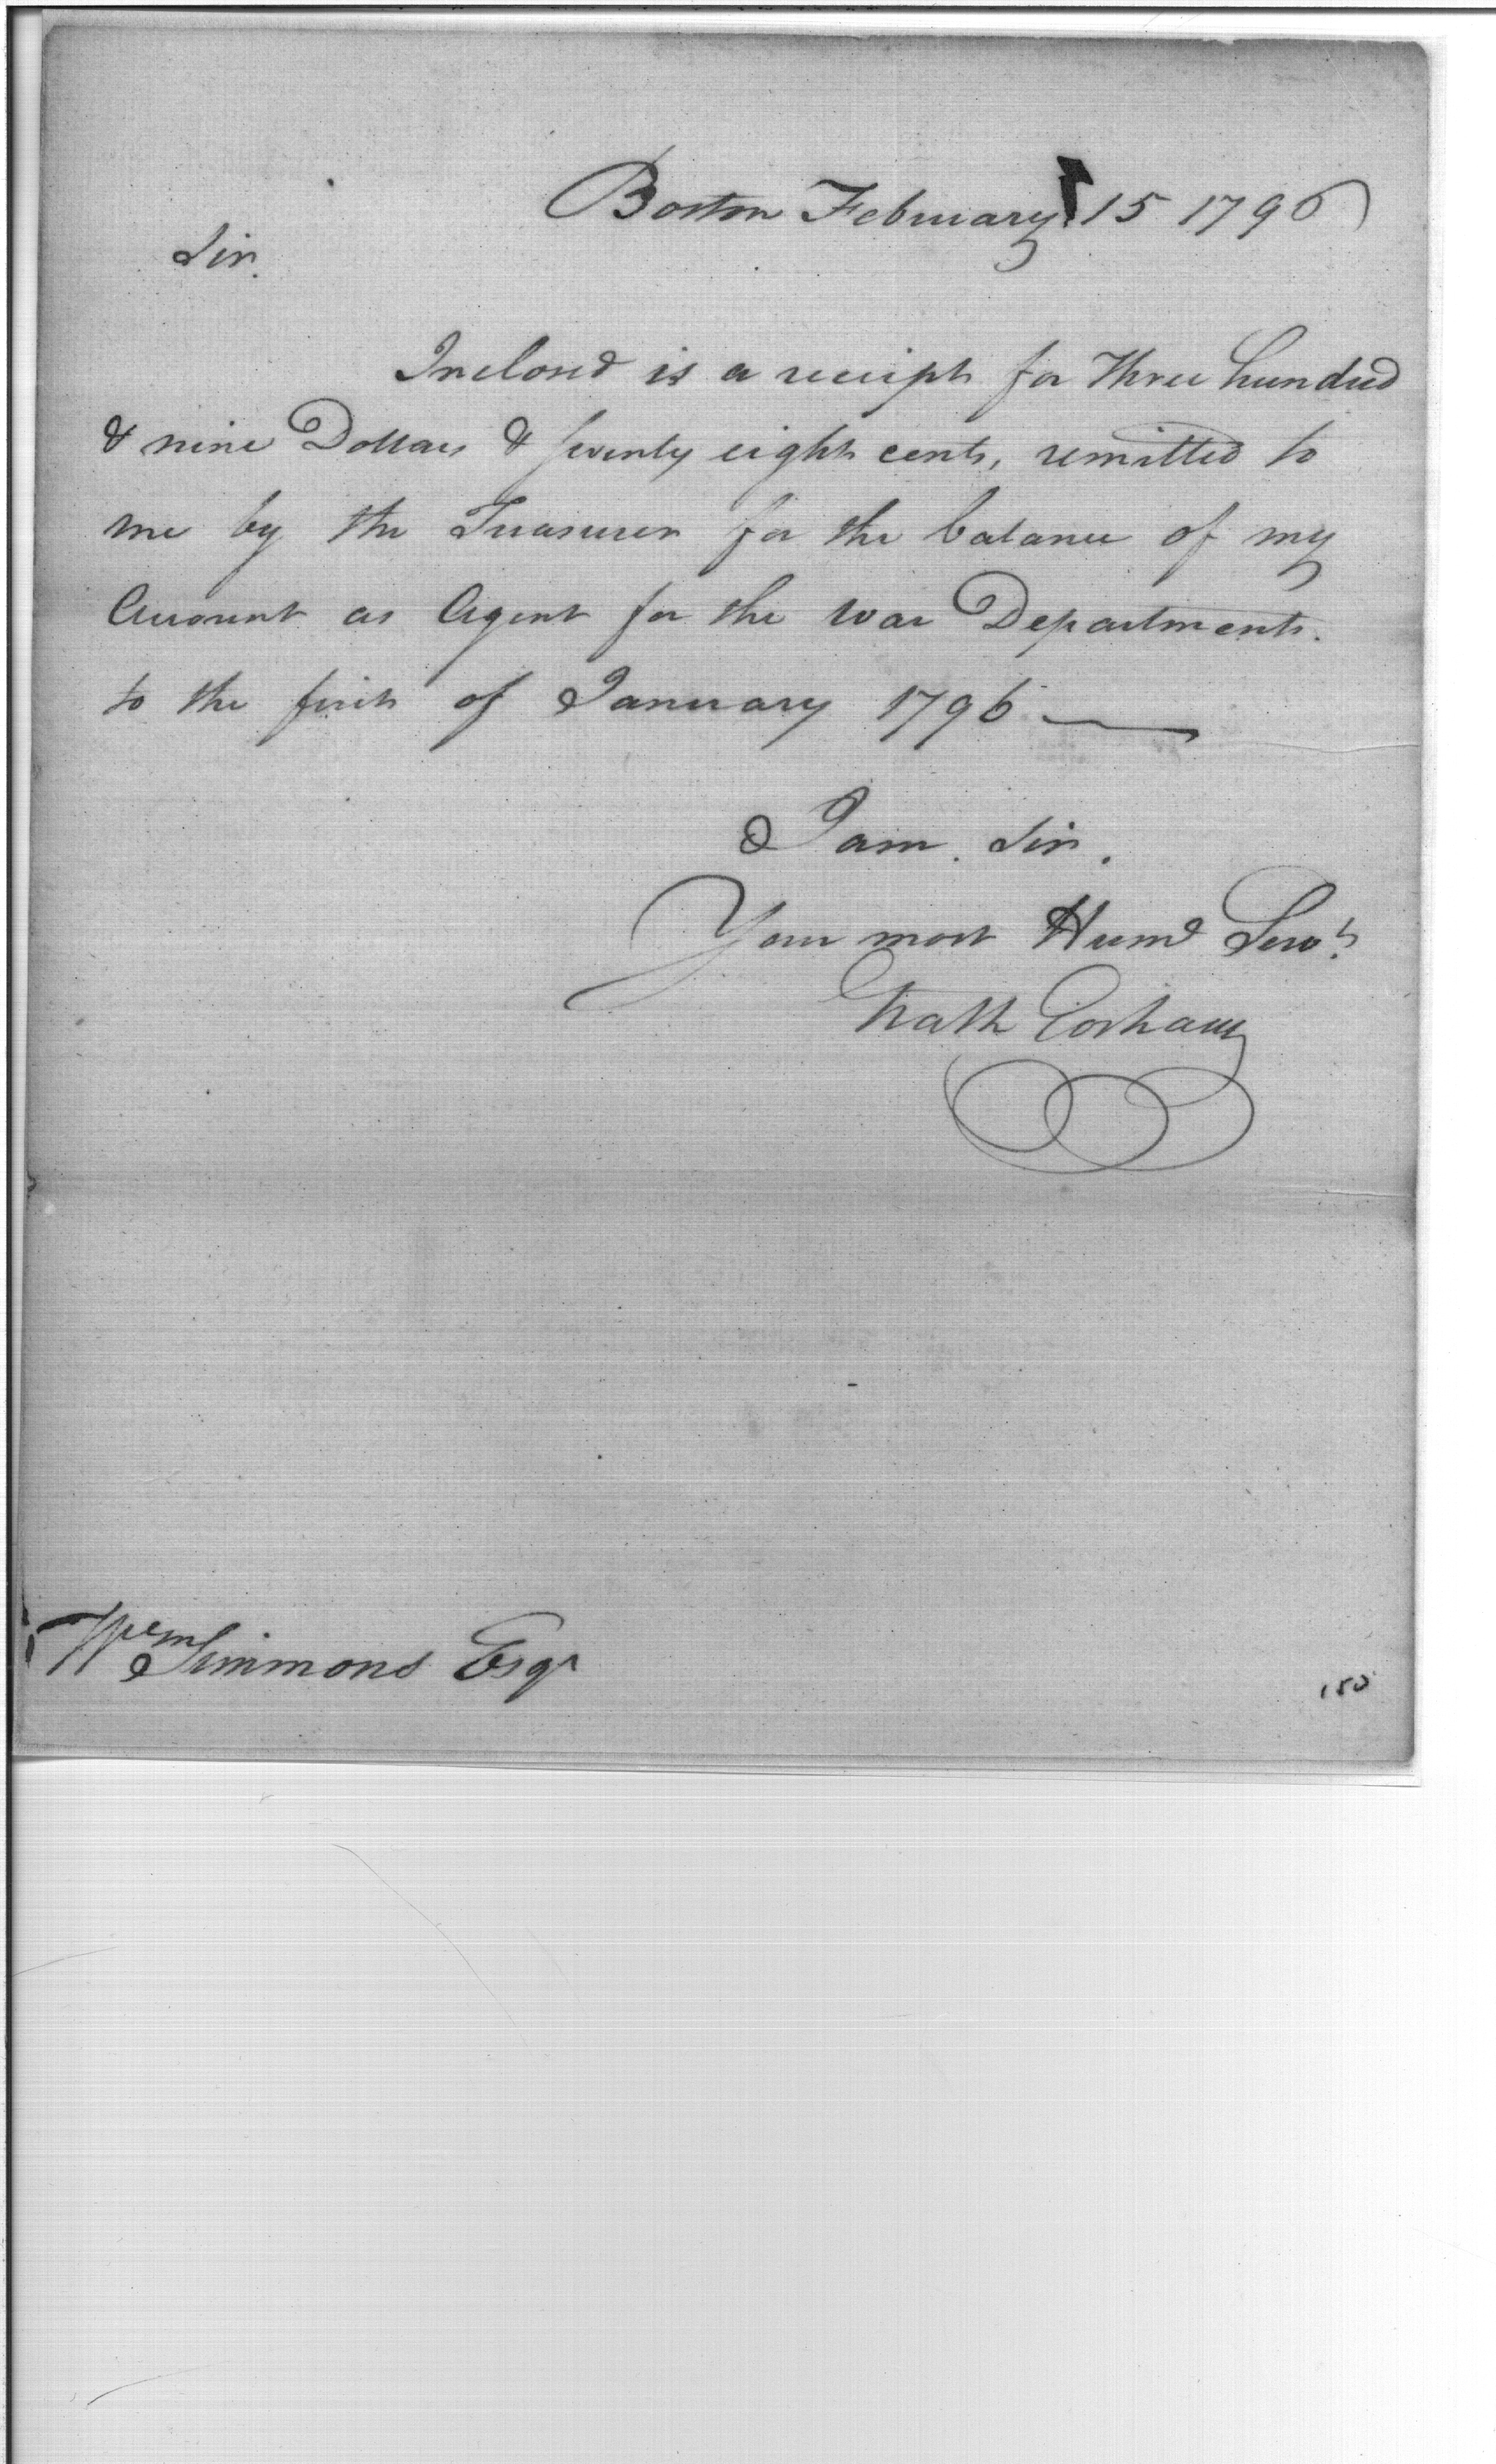 Boston February 15 1796
Sir.
Inclosed is a receipt for Three hundred
& nine Dollars & seventy eight cents, remitted to
me by the Treasurer for the balance of my
Account as Agent for the War Department.
to the first of January 1796
I am. Sir.
Your most Humbl Servt.
Nath Gorham
Wm Simmons Esqr
150